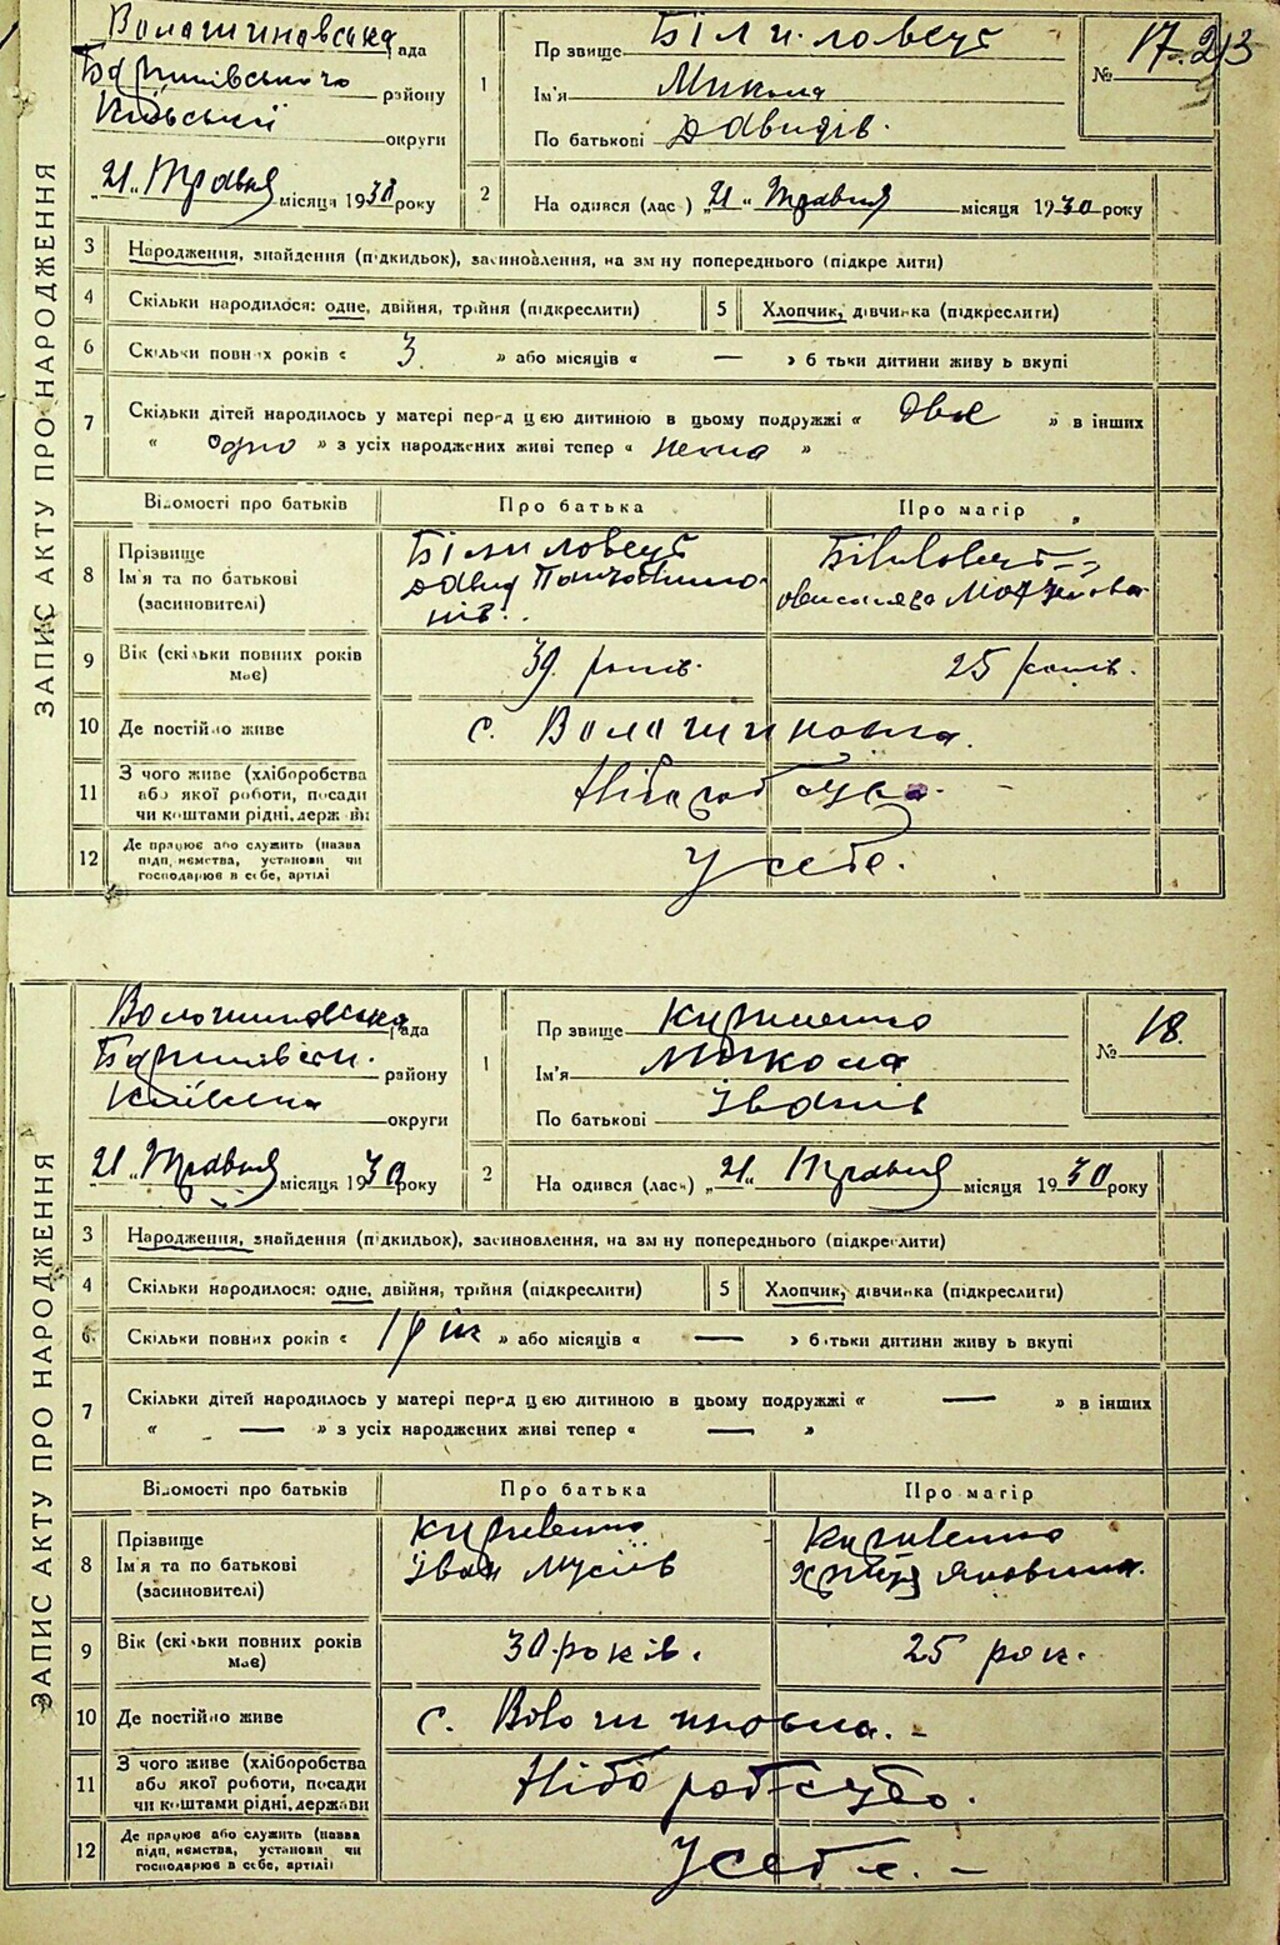 ЗАПИС АКТУ ПРО НАРОДЖЕННЯ
Волошиновська рада
Баришівського району
Київської округи
„21“ Травня місяця 1930 року
1
Пр звище Білиловець
Ім'я Микола
По батькові Давидів.
№ 17. 213
2 На одився (лас ) „21“ Травня місяця 1930 року
3 Народження, знайдення (підкидьок), засиновлення, на зм ну попереднього (підкре лити)
4 Скільки народилося: одне, двійня, трійня (підкреслити) 5 Хлопчик, дівчинка (підкреслити)
6 Скільки повних років « 3 » або місяців « — » б тьки дитини живу ь вкупі
7 Скільки дітей народилось у матері перед цією дитиною в цьому подружжі « двє » в інших
« одно » з усіх народжених живі тепер « нема »
Відомості про батьків Про батька Про матір
8 Прізвище Ім'я та по батькові (засиновителі)
Білиловець Давид
Білиловець
9 Вік (скільки повних років має) 39 років. 25 років.
10 Де постійно живе с. Волошиновка.
11 З чого живе (хліборобства або якої роботи, посади чи коштами рідні, держ ви Хліборобство.
12 Де працює або служить (назва підприємства, установи чи господарює в себе, артілі У себе.
ЗАПИС АКТУ ПРО НАРОДЖЕННЯ
Волошиновська рада
району
округи
„21“ Травня місяця 1930 року
1
Пр звище Кириленко
Ім'я Микола
По батькові Іванів
№ 18.
2 На одився (лас ) „21“ Травня місяця 1930 року
3 Народження, знайдення (підкидьок), засиновлення, на зм ну попереднього (підкреслити)
4 Скільки народилося: одне, двійня, трійня (підкреслити) 5 Хлопчик, дівчинка (підкреслити)
6 Скільки повних років « 1 рік » або місяців « — » батьки дитини живу ь вкупі
7 Скільки дітей народилось у матері перед цією дитиною в цьому подружжі « — » в інших
« — » з усіх народжених живі тепер « — »
Відомості про батьків Про батька Про матір
8 Прізвище Ім'я та по батькові (засиновителі)
Кириленко Іван Мусіїв
Кириленко Яковівна.
9 Вік (скільки повних років має) 30 років. 25 рок.
10 Де постійно живе с. Волошиновка. –
11 З чого живе (хліборобства або якої роботи, посади чи коштами рідні, держави Хліборобство.
12 Де працює або служить (назва підприємства, установи чи господарює в себе, артілі У себе. –